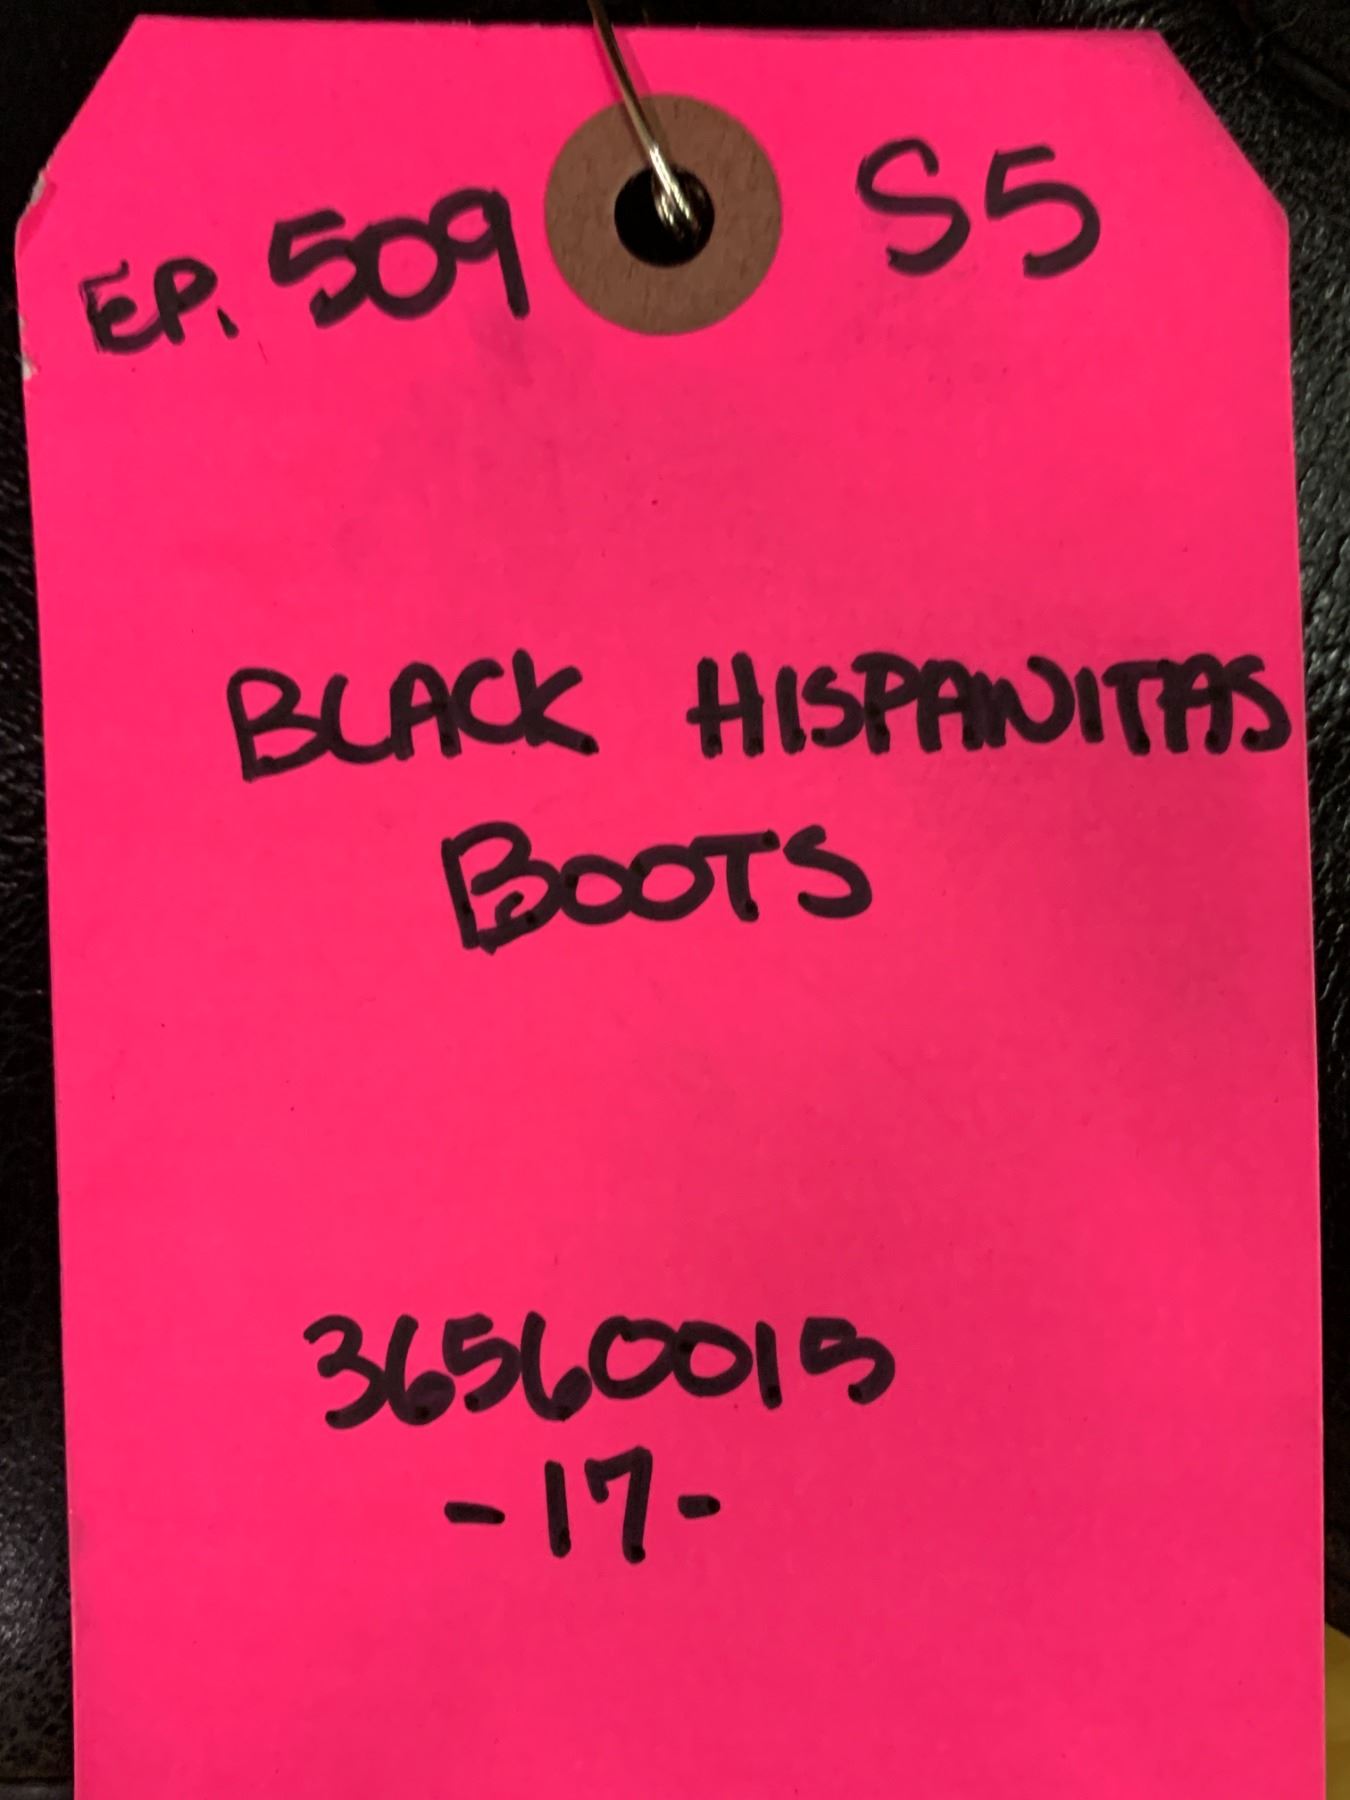 EP. 509 S5
BLACK HISPANITAS
BOOTS
36560015
-17-